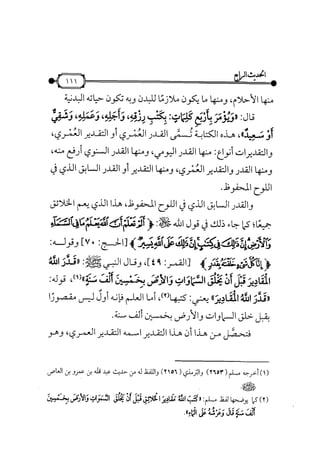 الحديث الرابع
١٦١
منها الأحلام، ومنها ما يكون ملازمًا للبدن وبه تكون حياته البدنية
قال: «وَيُؤْمَرُ بِأَرْبَعِ كَلِمَاتٍ: بِكَتْبِ رِزْقِهِ، وَأَجَلِهِ، وَعَمَلِهِ، وَشَقِيٌّ
أَوْ سَعِيدٌ»، هذه الكتابة تُسمَّى القدر العُمْري أو التقدير العُمْري،
والتقديرات أنواع: منها القدر اليومي، ومنها القدر السنوي أرفع منه،
ومنها القدر والتقدير العُمْري، ومنها التقدير أو القدر السابق الذي في
اللوح المحفوظ.
والقدر السابق الذي في اللوح المحفوظ، هذا الذي يعم الخلائق
جميعًا؛ كما جاء ذلك في قول الله ﷻ: ﴿أَلَمْ تَعْلَمْ أَنَّ اللَّهَ يَعْلَمُ مَا فِي السَّمَاءِ
وَالْأَرْضِ إِنَّ ذَلِكَ فِي كِتَابٍ إِنَّ ذَلِكَ عَلَى اللَّهِ يَسِيرٌ﴾ [الحج: ٧٠] وقوله:
﴿إِنَّا كُلَّ شَيْءٍ خَلَقْنَاهُ بِقَدَرٍ﴾ [القمر: ٤٩]، وقال النبي ﷺ: «قَدَّرَ اللَّهُ
الْمَقَادِيرَ قَبْلَ أَنْ يَخْلُقَ السَّمَاوَاتِ وَالْأَرْضَ بِخَمْسِينَ أَلْفَ سَنَةٍ»(١)، قوله:
«قَدَّرَ اللَّهُ الْمَقَادِيرَ» يعني: كتبها(٢)، أما العلم فإنه أولٌ ليس مقصورًا
بقبل خلق السماوات والأرض بخمسين ألف سنة.
فتحصَّل من هذا أن هذا التقدير اسمه التقدير العمري، وهو
(١) أخرجه مسلم (٢٦٥٣) والترمذي (٢١٥٦) واللفظ له من حديث عبد الله بن عمرو بن العاص
(٢) كما يوضحها لفظ مسلم: «كَتَبَ اللَّهُ مَقَادِيرَ الْخَلَائِقِ قَبْلَ أَنْ يَخْلُقَ السَّمَوَاتِ وَالْأَرْضَ بِخَمْسِينَ
أَلْفَ سَنَةٍ قَالَ وَعَرْشُهُ عَلَى الْمَاءِ».